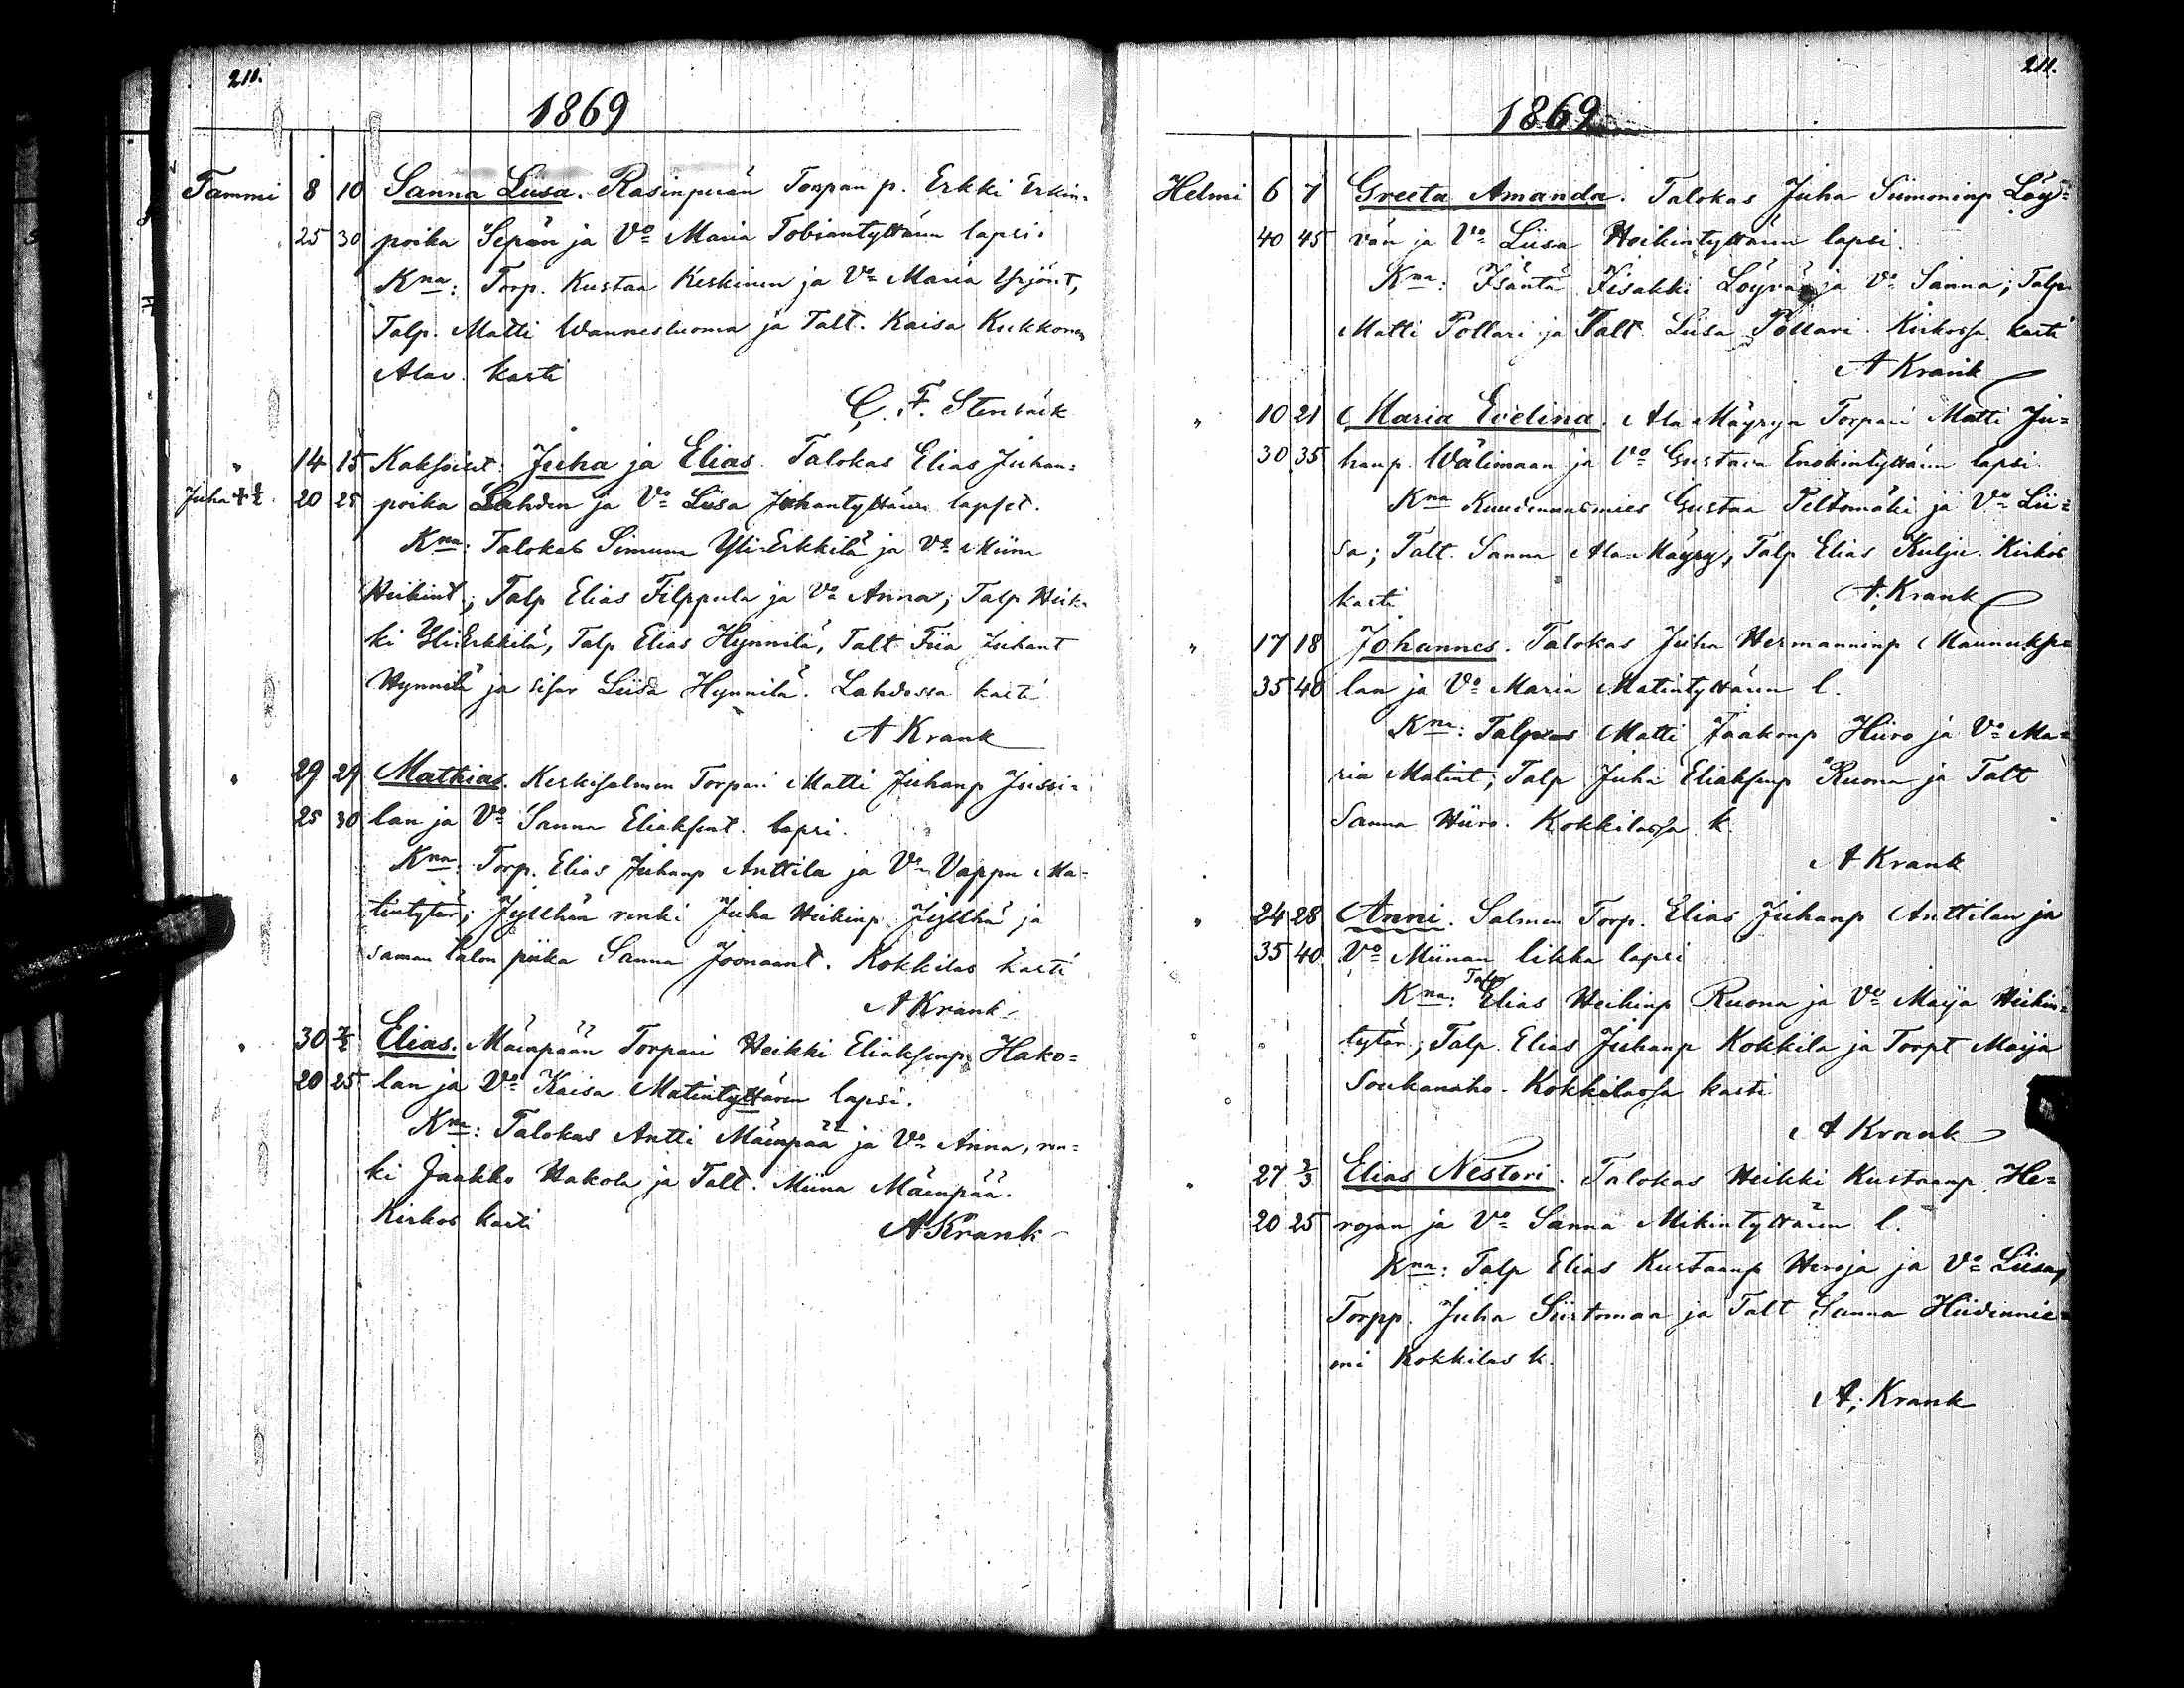 211.
1869
Tammi 8 10 Sanna Liisa. Rasinperän Torpan p. Erkki Erkin-
25 30 poika Sepän ja Vo Maria Tobiantyttären lapsi.
Kna: Torp. Kustaa Keskinen ja Vo Maria Yrjönt,
Talp. Matti Wannesluoma ja Talt. Kaisa Kukkonen
Alav. kasti
C. F. Stenbäck
" 14 15 Kaksoiset: Juha ja Elias. Talokas Elias Juhan=
Juha + 20 25 poika Lahden ja Vo Liisa Juhantyttären lapset.
Kna: Talokas Simuna Yli-Erkkilä ja Vo Miina
Heikint.; Talp Elias Filppula ja Vo Anna; Talp Heik-
ki Yli-Erkkilä, Talp Elias Hynnilä, Talt Fiia Juhant
Hynnilä ja sisar Liisa Hynnilä. Lahdessa kasti
A Krank
" 29 29 Mathias. Keskisalmen Torpari Matti Juhanp Jsissi=
25 30 lan ja Vo Sanna Eliaksent. lapsi.
Kna: Torp. Elias Juhanp Anttila ja Vo Vappu Ma=
tintytär; Jyllhän renki Juha Heikinp. Jyllhä ja
saman talon piika Sanna Joonaant. Kokkilas kasti
A Krank
" 30 2/2 Elias. Mäenpään Torpari Heikki Eliaksenp. Hako=
20 25 lan ja Vo Kaisa Matintyttären lapsi.
Kna: Talokas Antti Mäenpää ja Vo Anna, ren=
ki Jaakko Hakola ja Talt. Miina Mäenpää.
Kirkos kasti
A Krank
211.
1869
Helmi 6 7 Greeta Amanda. Talokas Juha Siimoninp Löy=
40 45 vän ja Vo Liisa Heikintyttären lapsi.
Kna: Isäntä Iisakki Löyvä ja Vo Sanna; Talp.
Matti Pollari ja Talt. Liisa Pollari. Kirkossa kasti
A Krank
" 10 21 Maria Evelina. Ala-Mäyryn Torpari Matti Ju=
30 35 hanp. Wälimaan ja Vo Gustava Enokintyttären lapsi.
Kna Kuudennusmies Gustaa Peltomäki ja Vo Lii=
sa; Talt. Sanna Ala-Mäyry, Talp Elias Kulju. Kirkos
kasti
A. Krank
" 17 18 Johannes. Talokas Juha Hermanninp Maunukse=
35 40 lan ja Vo Maria Matintyttären l.
Kna: Talpas Matti Jaakonp Hiiro ja Vo Ma=
ria Matint; Talp Juha Eliaksenp Ruona ja Talt
Sanna Hiiro. Kokkilassa k.
A Krank
" 24 28 Anni. Salmen Torp. Elias Juhanp Anttilan ja
35 40 Vo Miinan likka lapsi
Kna: Talp Elias Heikinp Ruona ja Vo Maija Heikin=
tytär; Talp. Elias Juhanp Kokkila ja Torpt Maija
Soukanaho. Kokkilassa kasti
A Krank
" 27 2/3 Elias Nestori. Talokas Heikki Kustaanp. He=
20 25 rojan ja Vo Sanna Mikintyttären l.
Kna: Talp Elias Kustaanp Heroja ja Vo Liisa,
Torpp. Juha Siirtomaa ja Talt Sanna Hiidennie=
mi Kokkilas k.
A. Krank